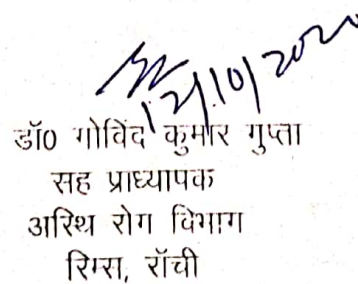 12/10/2020
डॉ0 गोविंद कुमार गुप्ता
सह प्राध्यापक
अस्थि रोग विभाग
रिम्स, राँची